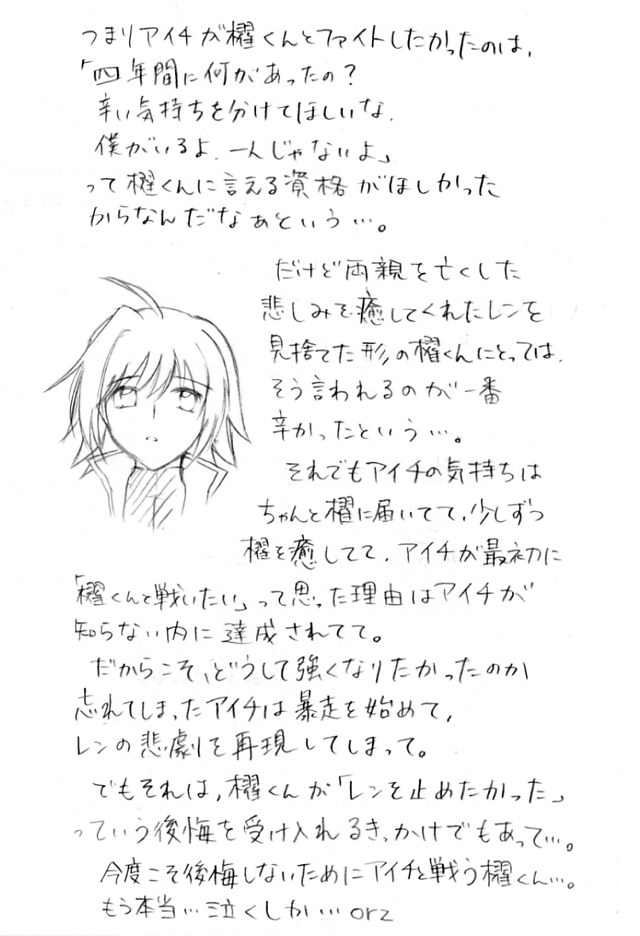 つまりアイチが櫂くんとファイトしたかったのは、
「四年間に何があったの？
辛い気持ちを分けてほしいな。
僕がいるよ。一人じゃないよ」
って櫂くんに言える資格がほしかった
からなんだなぁという…。
だけど両親を亡くした
悲しみを癒してくれたレンを
見捨てた形の櫂くんにとっては、
そう言われるのが一番
辛かったという…。
それでもアイチの気持ちは
ちゃんと櫂に届いてて、少しずつ
櫂を癒してて、アイチが最初に
「櫂くんと戦いたい」って思った理由はアイチが
知らない内に達成されてて。
だからこそ、どうして強くなりたかったのか
忘れてしまったアイチは暴走を始めて、
レンの悲劇を再現してしまって。
でもそれは、櫂くんが「レンを止めたかった」
っていう後悔を受け入れるきっかけでもあって…。
今度こそ後悔しないためにアイチと戦う櫂くん…。
もう本当…泣くしか…orz